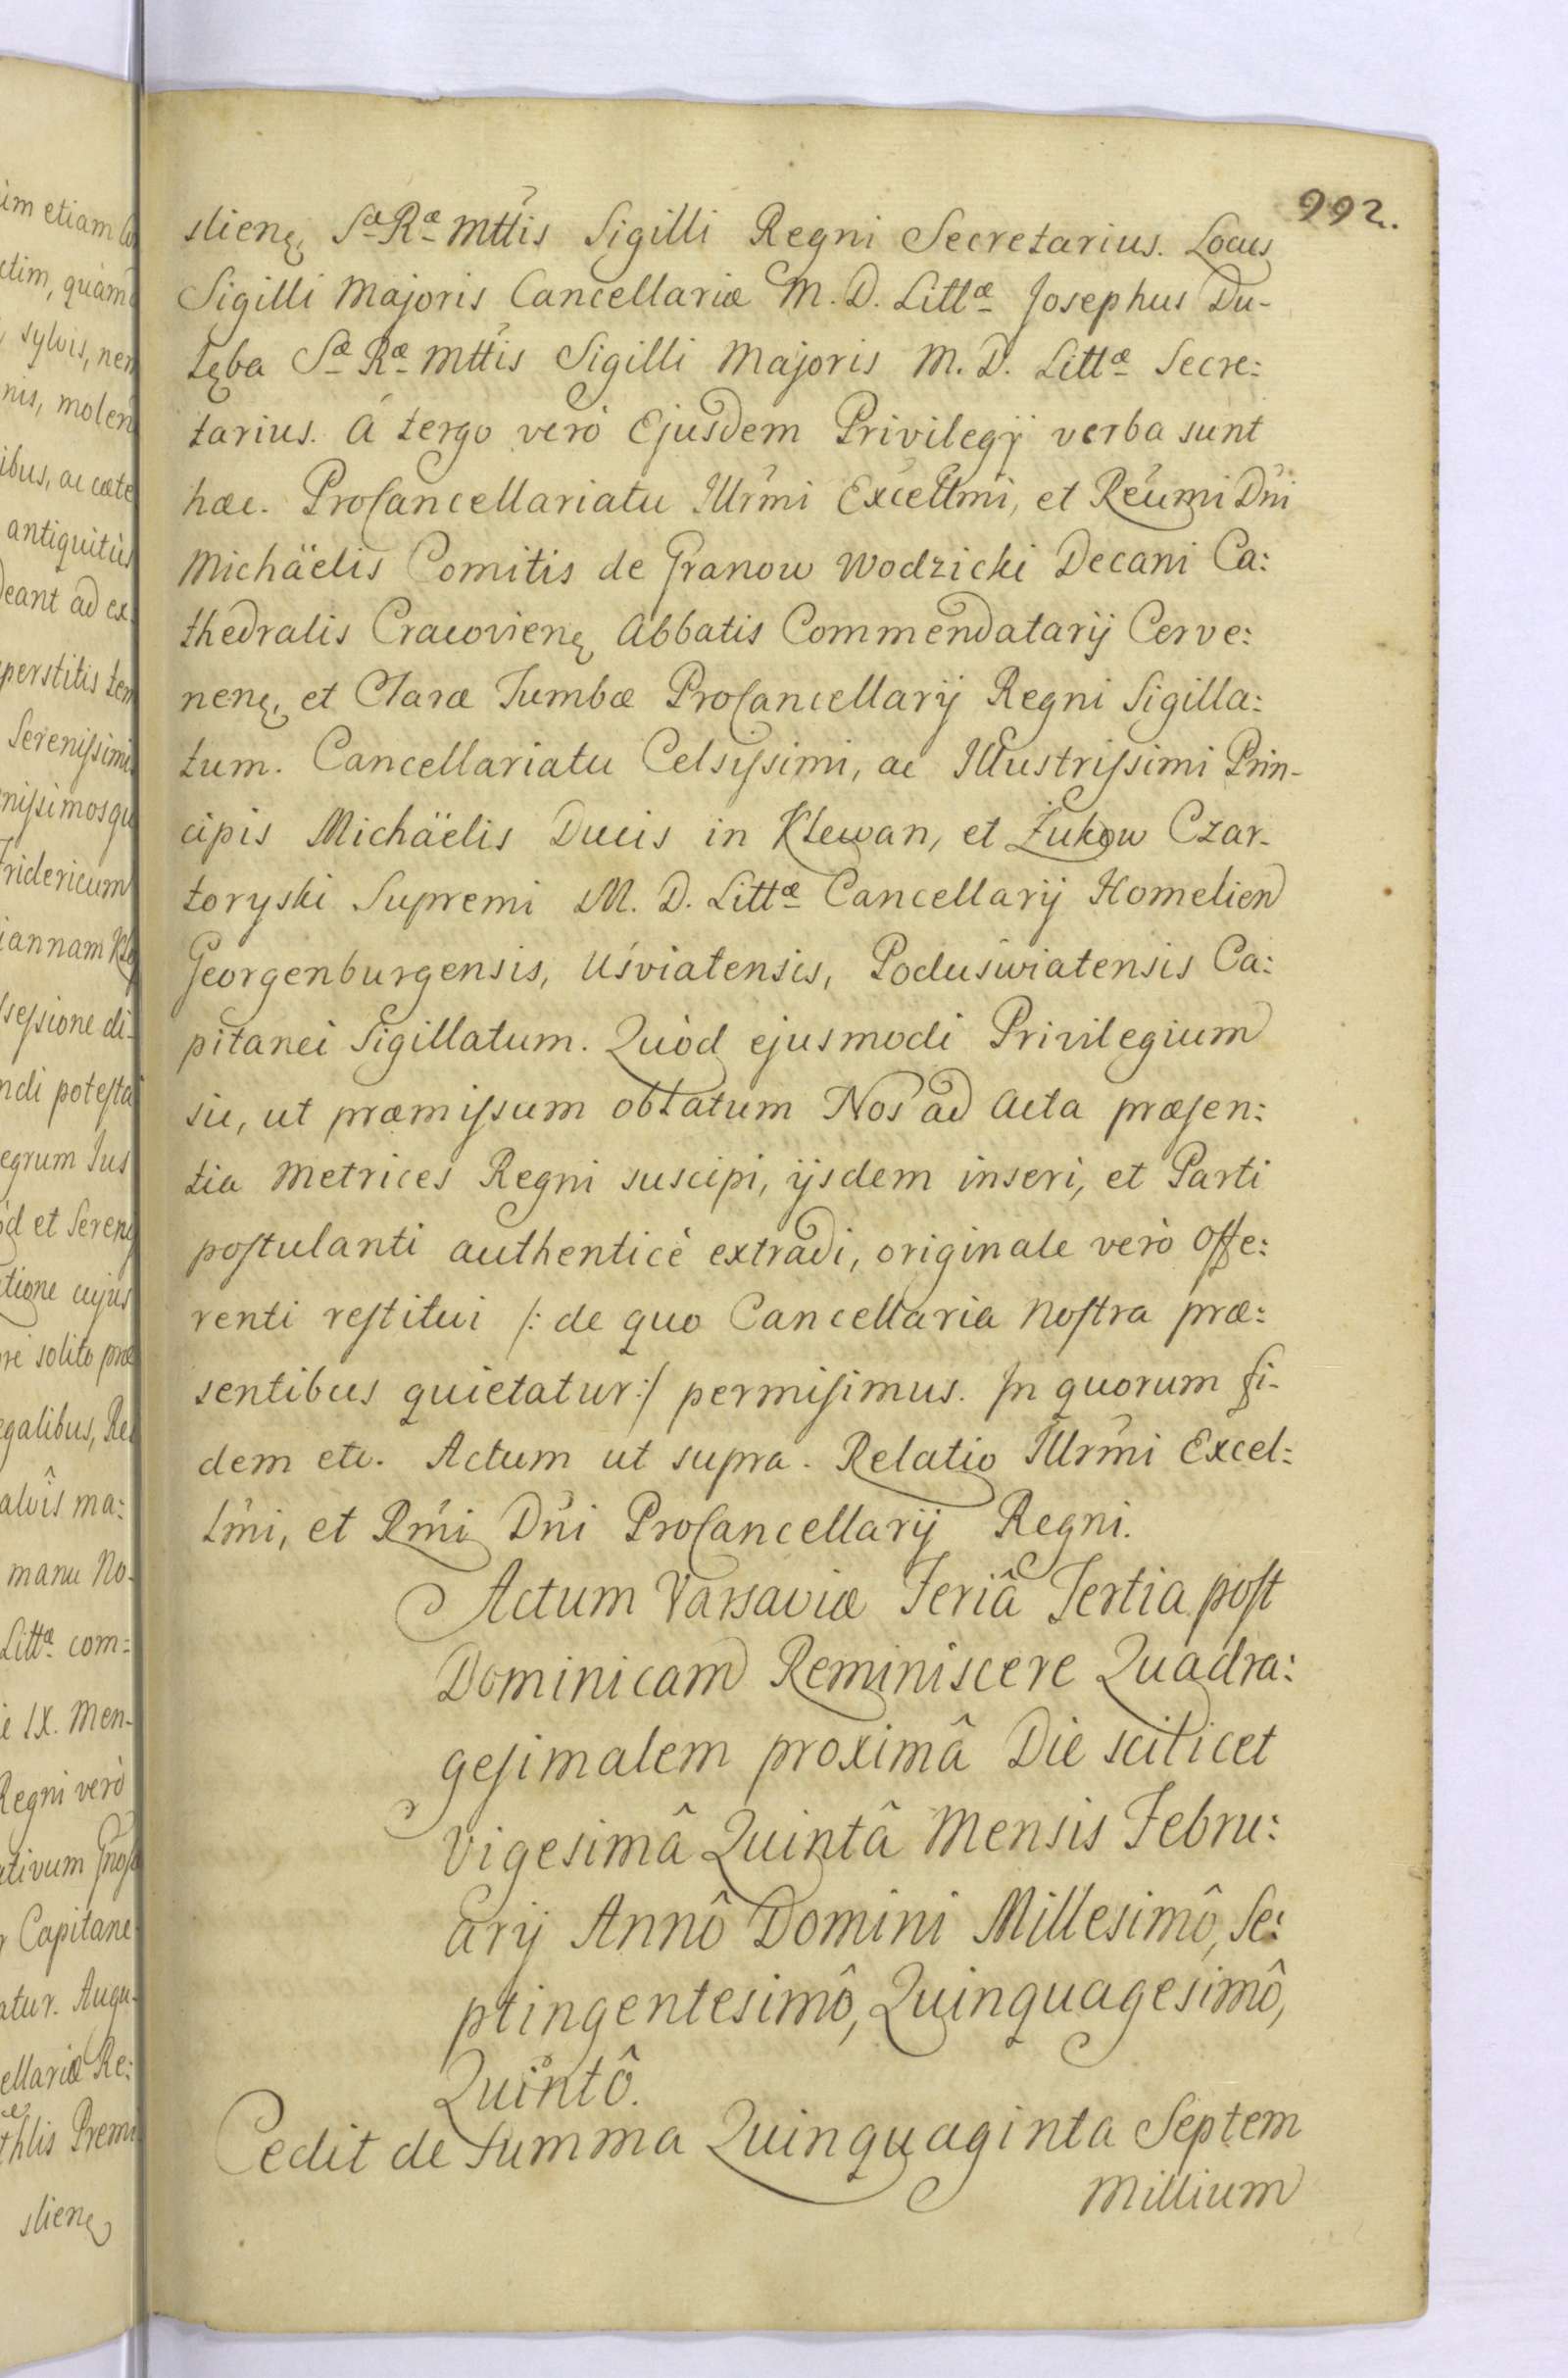 992.
slienȩ Sæ Ræ Mttis Sigilli Regni Secretarius. Locus
Sigilli Majoris Cancellariæ M. D. Littæ Josephus Du-
łęba Sæ Ræ Mttis Sigilli Majoris M. D. Littæ Secre:
tarius. A tergo verò Ejusdem Privilegij verba sunt
hæc. ProCancellariatu Illrmi Excellmi, et Reumi Dni
Michäelis Comitis de Granow Wodzicki Decani Ca:
thedralis Cracovienȩ Abbatis Commendatarij Cerve:
nenȩ, et Claræ Tumbæ ProCancellarij Regni Sigilla:
tum. Cancellariatu Celsiſsimi, ac Illustriſsimi Prin-
cipis Michäelis Ducis in Klewan, et Żukow Czar-
toryski Supremi M. D. Littæ Cancellarij Homelien
Georgenburgensis, Uśviatensis, Poduświatensis Ca:
pitanei Sigillatum. Quòd ejusmodi Privilegium
sic, ut præmiſsum oblatum Nos ad Acta præſen:
tia Metrices Regni suscipi, ijsdem inseri, et Parti
poſtulanti authenticè extradi, originale verò offe:
renti reſtitui /: de quo Cancellaria noſtra præ:
sentibus quietatur :/ permiſimus. In quorum fi-
dem etc. Actum ut supra. Relatio Illrmi Excel:
lmi, et Rmi Dni ProCancellarij Regni.
Actum Varsaviæ Feriâ Tertia poſt
Dominicam Reminiscere Quadra:
geſimalem proximâ Die scilicet
Vigesimâ Quintâ Mensis Febru:
arij Annô Domini Millesimô, Se:
ptingentesimô, Quinquagesimô,
Quintô.
Cedit de Summa Quinquaginta Septem
Millium
im etiam
ctim, quàm
sylvis, nem
nis, molen
ibus, ac cæte
antiquitùs
deant ad ex
perstitis tem
Sereniſsimi
niſsimosqu
Fridericum
iannam
ſseſsione di-
ndi poteſta
egrum Jus
òd et Seren
tione cujus
re solito præ
egalibus, Re
alvîs ma:
manu No-
Littæ com:
IX. Men-
Regni verò
ativum
Capitane
atur. Augu-
ellariæ Re:
thlis Premi
slienȩ